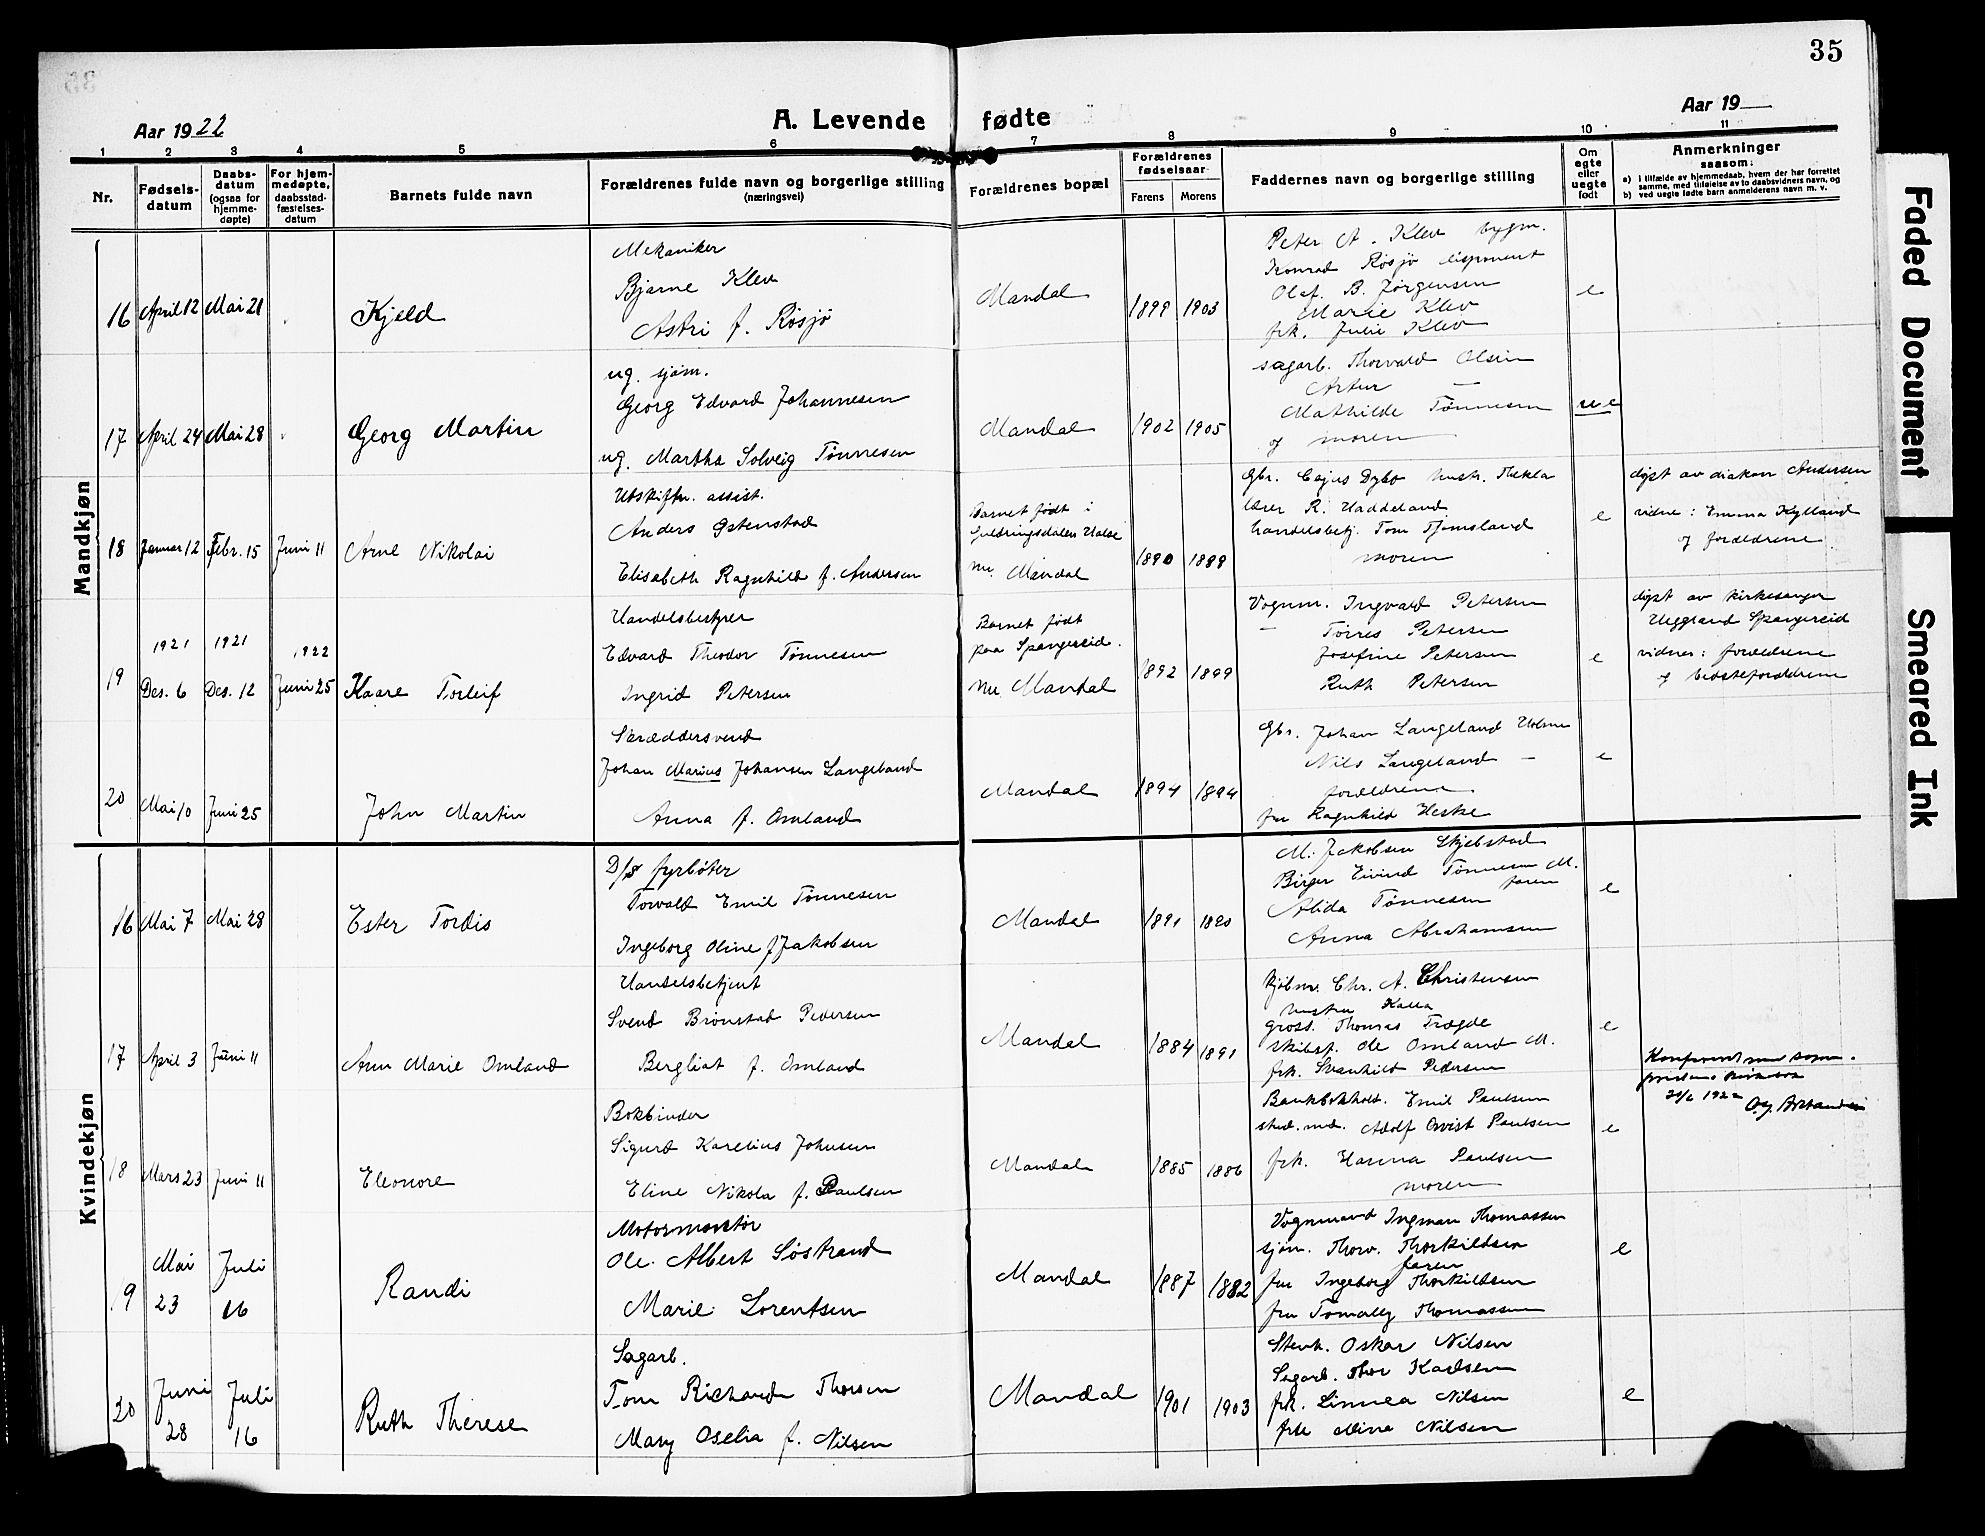 35
Aar 1922
A. Levende fødte
Aar 19
1 2 3 4 5 6 7 8 9 10 11
Nr.
Fødsels-
datum
Daabs-
datum
(ogsaa for
hjemme-
døpte)
For hjem-
medøpte,
daabsstad-
fæstelses-
datum
Barnets fulde navn
Forældrenes fulde navn og borgerlige stilling
(næringsvei)
Forældrenes bopæl
Forældrenes
fødselsaar
Farens Morens
Faddernes navn og borgerlige stilling
Om
egte
eller
uegte
født
Anmerkninger
saasom:
a) i tilfælde av hjemmedaab, hvem der har forrettet
samme, med tilføielse av to daabsvidners navn, og
b) ved uegte fødte barn anmelderens navn m. v.
Mandkjøn
16 April 12 Mai 21 Kjeld
Mekaniker
Bjarne Klev
Astri f. Røsjø
Mandal 1899 1903
Peter A. Klev bygm.
Konrad Røsjø disponent
Olaf. B. Jørgensen
Marie Klev
frk. Julie Klev
e
17 April 24 Mai 28 Georg Martin
ug. sjøm.
Georg Edvard Johannesen
ug. Martha Solveig Tønnesen
Mandal 1902 1905
sagarb. Thorvald Olsen
Artur —
Mathilde Tønnesen
og moren
u e
18 Januar 12 Febr. 15 Juni 11 Arne Nikolai
Utskiftn. assist.
Anders Østenstad
Elisabeth Ragnhild f. Andersen
Barnet født i
nu. Mandal
1890 1899
Gbr. Cajus Dybo hustr. Thekla
lærer R. Haddeland
handelsbetj. Tom Tjomsland
moren
e
døpt av diakon Andersen
vidne: Emma Kylland
og forældrene
19 1921 Des. 6 1921 Des. 12 1922 Juni 25 Kaare Torleif
Handelsbestyrer
Edvard Theodor Tønnesen
Ingrid Petersen
Barnet født
paa Spangereid.
nu. Mandal
1892 1899
Vognm. Ingvald Petersen
— Tørres Petersen
Josefine Petersen
Ruth Petersen
e
døpt av kirkesanger
Heggland Spangereid
vidner: forældrene
og bedsteforældrene
20 Mai 10 Juni 25 John Martin
Skræddersvend
Johan Marius Johansen Langeland
Anna f. Omland
Mandal 1894 1894
Gbr. Johan Langeland Holme
Nils Langeland —
forældrene
fru Ragnhild Heske
e
Kvindekjøn
16 Mai 7 Mai 28 Ester Tordis
D/S fyrbøter
Torvald Emil Tønnesen
Ingeborg Oline f Jakobsen
Mandal 1891 1890
M. Jakobsen Skjebstad
Birger Eivind Tønnesen M.
faren
Alida Tønnesen
Anna Abrahamsen
e
17 April 3 Juni 11 Ann Marie Omland
Handelsbetjent
Svend Brønstad Pedersen
Bergliot f. Omland
Mandal 1884 1891
kjøbm. Chr. A. Christensen
hustru Kalla
gross. Thomas Trægde
skibsf. Ole Omland M.
frk. Svanhild Pedersen
e
18 Mars 23 Juni 11 Eleonore
Bokbinder
Sigurd Karelius Johnsen
Eline Nikola f. Paulsen
Mandal 1885 1886
Bankbokhold. Emil Paulsen
stud. med. Adolf Qvist Paulsen
frk. Hanna Paulsen
moren
e
19 Mai 23 Juli 16 Randi
Motormontør
Ole. Albert Søstrand
Marie Lorentsen
Mandal 1887 1882
Vognmand Ingman Thomassen
sjøm. Thorv. Thorkildsen
faren
fru Ingeborg Thorkildsen
fru Tomally Thomassen
e
20 Juni 28 Juli 16 Ruth Therese
Sagarb.
Tom Richard Thorsen
Mary Oselia f. Nilsen
Mandal 1901 1903
Stenh. Oskar Nilsen
Sagarb. Thor Karlsen
frk. Linnea Nilsen
frk Mina Nilsen
e
Faded Document
Smeared Ink